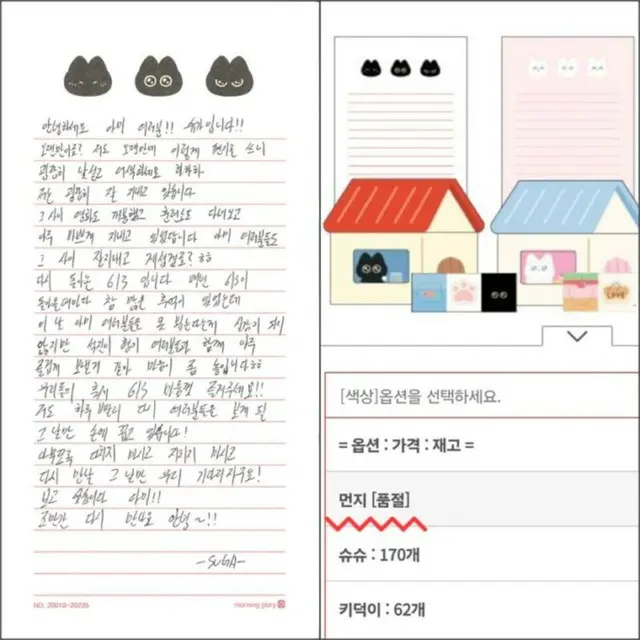 안녕하세요 아미 여러분!! 슈가입니다!!
오랜만이죠? 저도 오랜만에 이렇게 편지를 쓰니
굉장히 낯설고 어색하네요 하하하
저는 굉장히 잘 지내고 있습니다
그 사이 영화도 개봉했고 훈련소도 다녀오고
아주 바쁘게 지내고 있었답니다 아미 여러분들도
그 사이 잘지내고 계셨죠? ㅎㅎ
다시 돌아온 6/3 입니다 매번 6/3이
돌아올때마다 참 많은 추억이 있었는데
이 날 아미 여러분들을 못 뵙는다는게 실감이 되지
않지만 석진이 형이 여러분들과 함께 아주
즐겁게 보낼거 같아 마음이 좀 놓입니다ㅎㅎ
우리들의 축제 6/3 마음껏 즐겨주세요!!
저도 하루 빨리 다시 여러분들을 보게 될
그 날만 손에 꼽고 있습니다!
아무쪼록 다치지 마시고 지치지 마시고
다시 만날 그 날만 우리 기다려
보고 싶습니다 아미!!
조만간 다시 만나요 안녕~!!
-SUGA-
NO. 20010-20235
morning glory
LOVE
[색상]옵션을 선택하세요.
= 옵션 : 가격 : 재고 =
먼지 [품절]
슈슈 : 170개
키덕이 : 62개